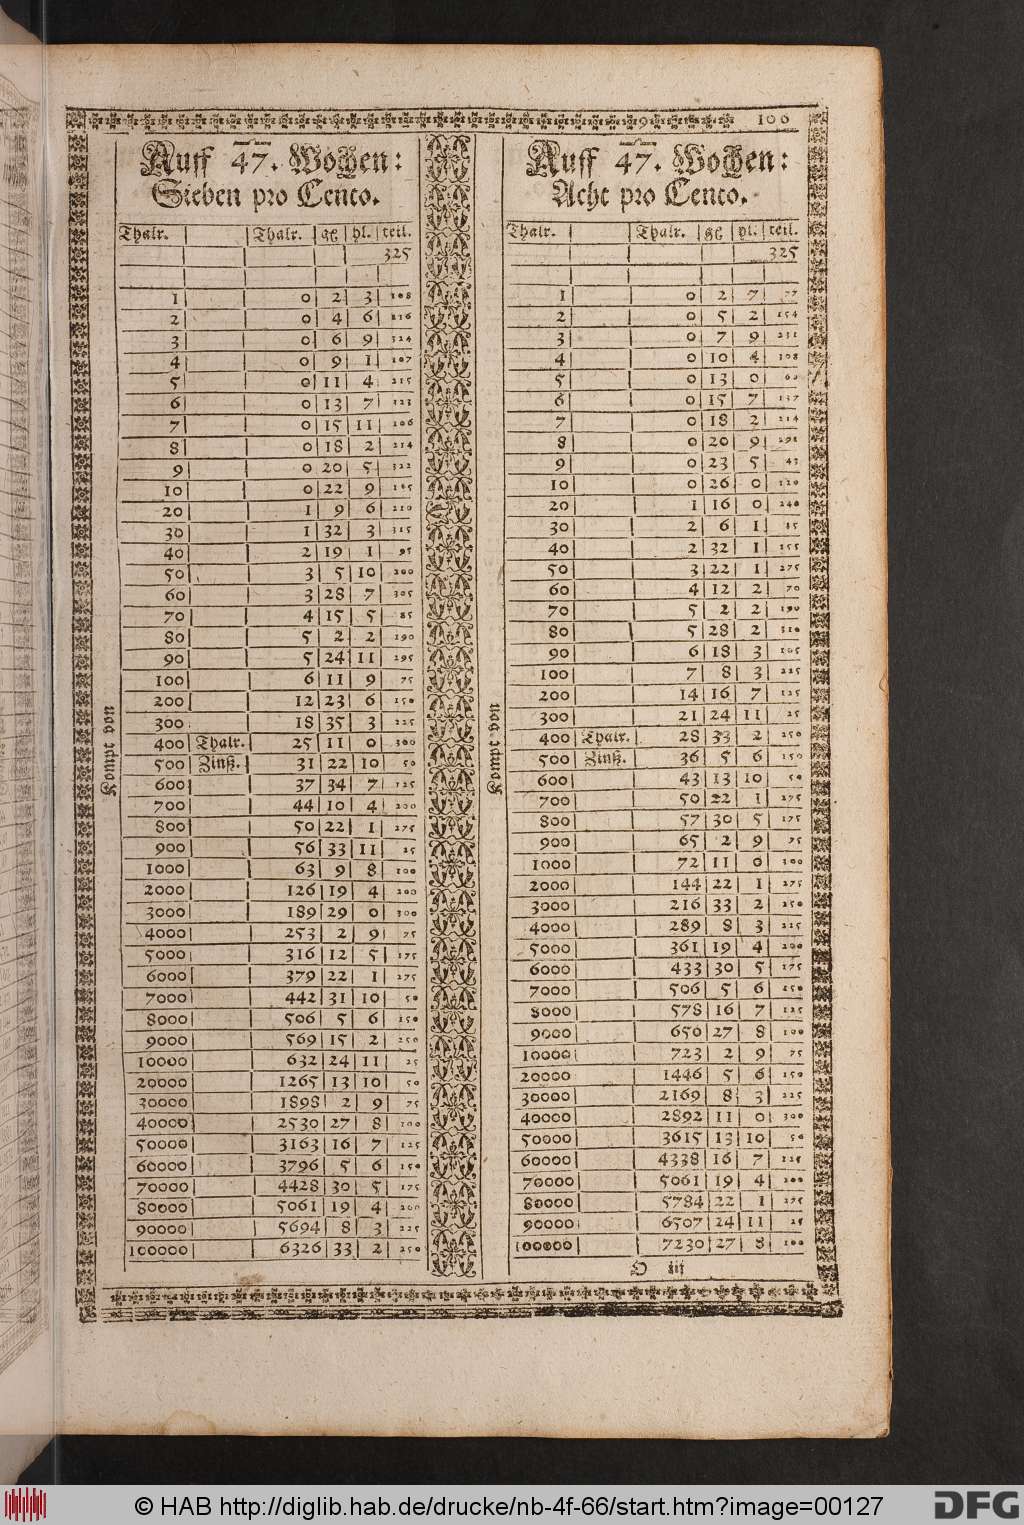 100
Auff 47. Wochen:
Sieben pro Cento.
Thalr. Thalr. gg pf. teil.
325
1 0 2 3 108
2 0 4 6 216
3 0 6 9 324
4 0 9 1 107
5 0 11 4 215
6 0 13 7 323
7 0 15 11 106
8 0 18 2 214
9 0 20 5 322
10 0 22 9 105
20 1 9 6 210
30 1 32 3 315
40 2 19 1 95
50 3 5 10 200
60 3 28 7 305
70 4 15 5 85
80 5 2 2 190
90 5 24 11 295
100 6 11 9 75
200 12 23 6 150
300 18 35 3 225
400 Thalr. 25 11 0 300
500 Zinß. 31 22 10 50
600 37 34 7 125
700 44 10 4 200
800 50 22 1 275
900 56 33 11 25
1000 63 9 8 100
2000 126 19 4 200
3000 189 29 0 300
4000 253 2 9 75
5000 316 12 5 175
6000 379 22 1 275
7000 442 31 10 50
8000 506 5 6 150
9000 569 15 2 250
10000 632 24 11 25
20000 1265 13 10 50
30000 1898 2 9 75
40000 2530 27 8 100
50000 3163 16 7 125
60000 3796 5 6 150
70000 4428 30 5 175
80000 5061 19 4 200
90000 5694 8 3 225
100000 6326 33 2 250
Kompt von
Auff 47. Wochen:
Acht pro Cento.
Thalr. Thalr. gg pf. teil.
325
1 0 2 7 77
2 0 5 2 154
3 0 7 9 231
4 0 10 4 308
5 0 13 0 60
6 0 15 7 137
7 0 18 2 214
8 0 20 9 291
9 0 23 5 43
10 0 26 0 120
20 1 16 0 240
30 2 6 1 35
40 2 32 1 155
50 3 22 1 275
60 4 12 2 70
70 5 2 2 190
80 5 28 2 310
90 6 18 3 105
100 7 8 3 225
200 14 16 7 125
300 21 24 11 25
400 Thalr. 28 33 2 250
500 Zinß. 36 5 6 150
600 43 13 10 50
700 50 22 1 275
800 57 30 5 175
900 65 2 9 75
1000 72 11 0 300
2000 144 22 1 275
3000 216 33 2 250
4000 289 8 3 225
5000 361 19 4 200
6000 433 30 5 175
7000 506 5 6 150
8000 578 16 7 125
9000 650 27 8 100
10000 723 2 9 75
20000 1446 5 6 150
30000 2169 8 3 225
40000 2892 11 0 300
50000 3615 13 10 50
60000 4338 16 7 125
70000 5061 19 4 200
80000 5784 22 1 275
90000 6507 24 11 25
100000 7230 27 8 100
Kompt von
O iij
© HAB http://diglib.hab.de/drucke/nb-4f-66/start.htm?image=00127
DFG